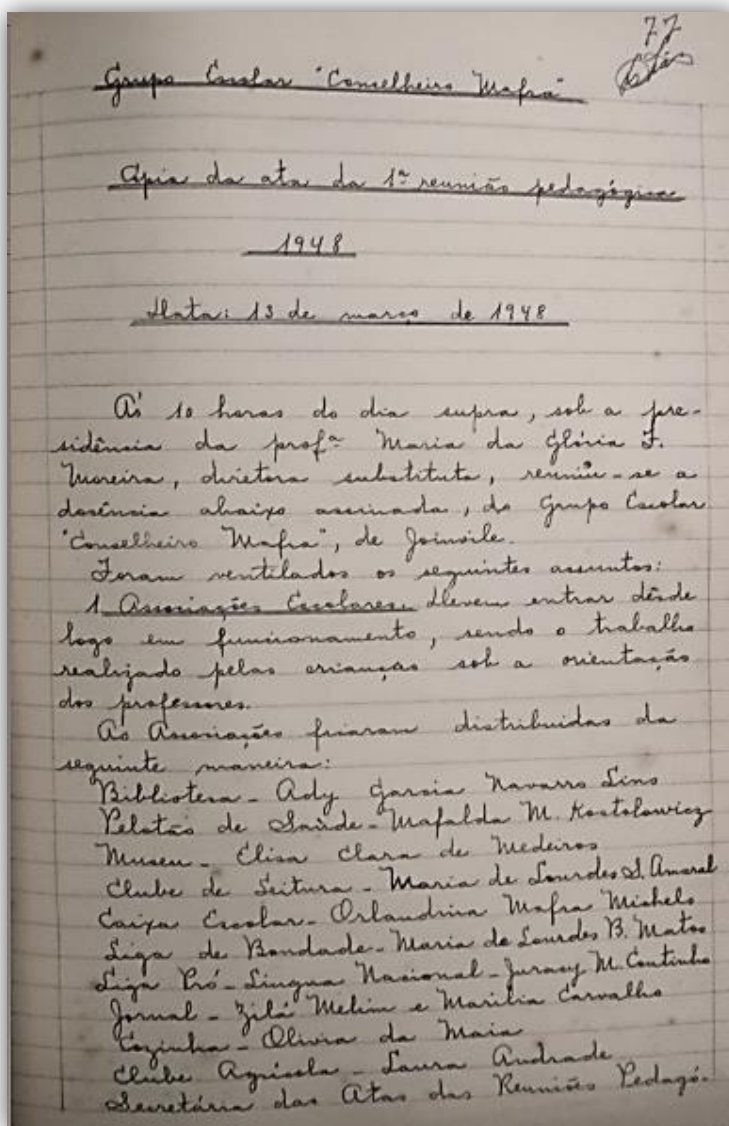 77
Grupo Escolar "Conselheiro Mafra"
Cópia da ata da 1ª reunião pedagógica
1948
Data: 13 de março de 1948
Às 10 horas do dia supra, sob a pre-
sidência da profª Maria da Glória F.
Moreira, diretora substituta, reuniu-se a
docência abaixo assinada, do Grupo Escolar
"Conselheiro Mafra", de Joinvile.
Foram ventilados os seguintes assuntos:
1 Associações Escolares. Devem entrar desde
logo em funcionamento, sendo o trabalho
realizado pelas crianças sob a orientação
dos professores.
As Associações ficaram distribuidas da
seguinte maneira:
Biblioteca - Ady Garcia Navarro Lins
Pelotão de Saúde - Mafalda M. Kostolowicz
Museu - Elisa Clara de Medeiros
Clube de Leitura - Maria de Lourdes S. Amaral
Caixa Escolar - Orlandina Mafra Michels
Liga de Bondade - Maria de Lourdes B. Matos
Liga Pró-Lingua Nacional - Juracy M. Coutinho
Jornal - Zilá Melim e Marilia Carvalho
Cozinha - Olivia da Maia
Clube Agrícola - Laura Andrade
Secretária das Atas das Reuniões Pedagó-